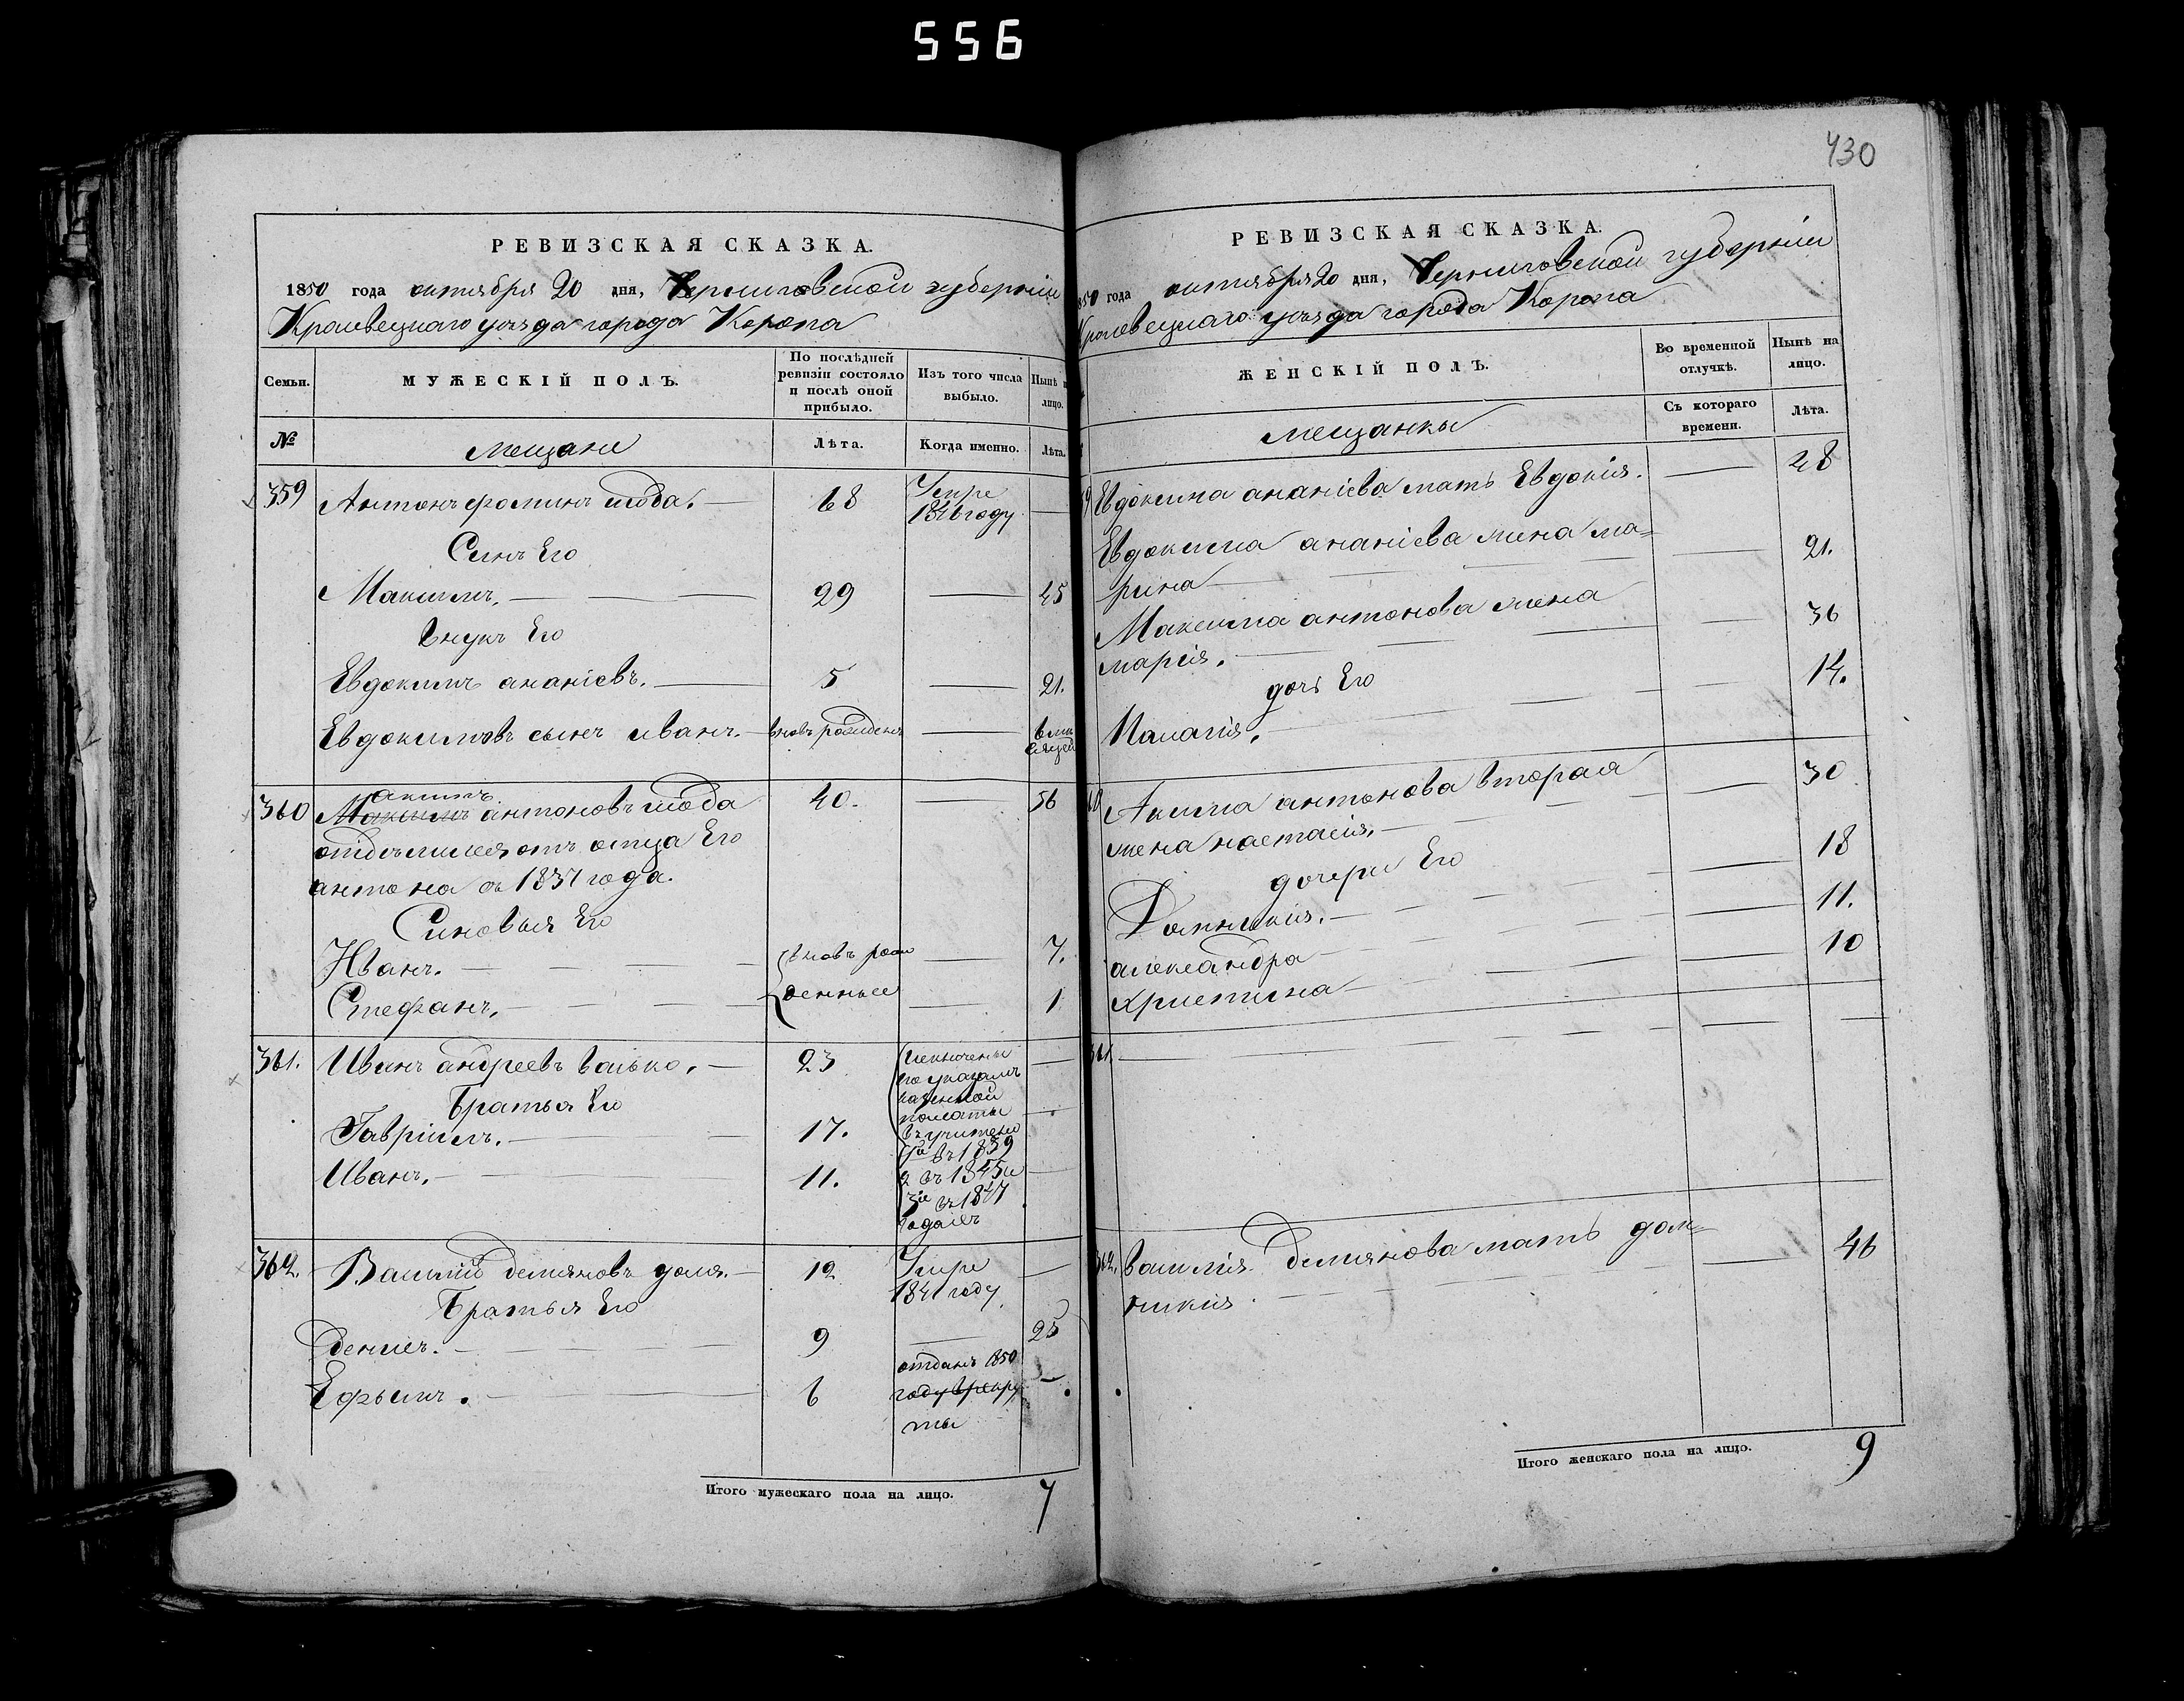 556
430
РЕВИЗСКАЯ СКАЗКА.
1850 года октября 20 дня, Черниговской губернiи
Кролевецкаго уезда города Коропа
Семьи.
МУЖЕСКIЙ ПОЛЪ.
По послѣдней ревизiи состояло и послѣ оной прибыло.
Изъ того числа выбыло.
Нынѣ н лицо.
№
мещане
Лѣта.
Когда именно.
Лѣта.
359 Антонъ фоминъ 68 Умре 1846 году —
Синъ Его
Максимъ. — 29 — 45
Внукъ Его
Евдокимъ ананiевъ. — 5 — 21.
Евдокимовъ сынъ иванъ. — вновь рожденъ — 6 ме сяцей
360 Максимъ акимъ антоновъ 40. — 56
отделился отъ отца Его
антона съ 1837 года.
Синовья Его
Иванъ. — вновь рож — 7.
Стефанъ. — денные — 1
361. Иванъ андреевъ 23 исключены —
по указамъ
казенной
Братья Его
полаты
Гаврiилъ. — 17. —
въ 1839
Иванъ. — 11. 2 въ 1845 и —
3й въ 1847
годахъ
362. Василiй демяновъ 12 Умре 1841 году —
Братья Его
денисъ. — 9 — 25
отданъ 1850
Ефымъ. — 6 году врекру —
ты
Итого мужескаго пола на лицо. 7
РЕВИЗСКАЯ СКАЗКА.
850 года октября 20 дня, Черниговской губернiи
Кролевецкаго уезда города Коропа
ЖЕНСКIЙ ПОЛЪ.
Во временной отлучкѣ.
Нынѣ на лицо.
мещанки
Съ котораго времени.
Лѣта.
Евдокима ананiева мать Евдокiя. — 48
Евдокима ананiева жена ма=
рина — 21.
Максима антонова жена
марiя. — 36
дочъ Его
Палагiя. — 14.
Акима антонова вторая
жена настасiя. — 30
дочери Его
Домникiя. — 18
александра — 11.
христина — 10
361. —
362. василiя демянова мать дом=
никiя. — 46
Итого женскаго пола на лицо. 9